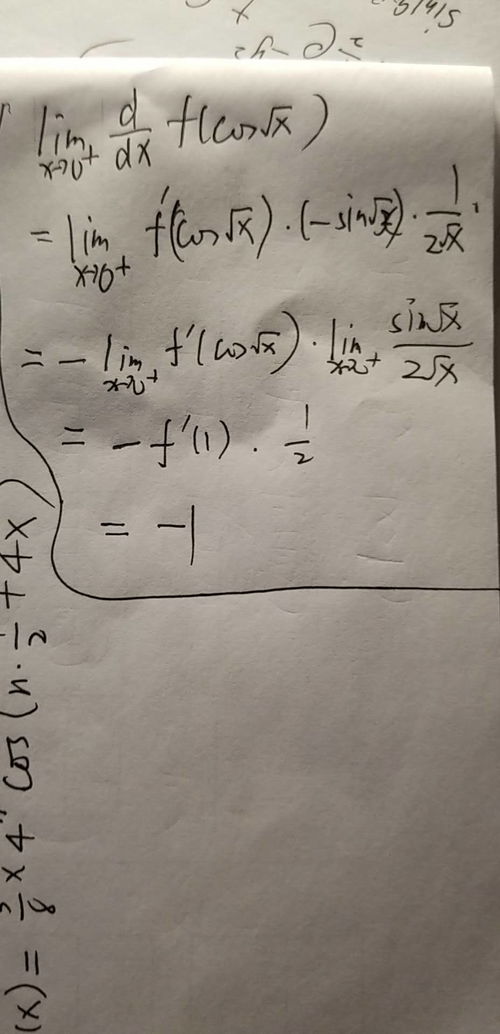 lim_{x→0⁺} d/dx f(cos√x)
= lim_{x→0⁺} f'(cos√x)·(-sin√x)·1/(2√x)
= - lim_{x→0⁺} f'(cos√x)·lim_{x→0⁺} sin√x/(2√x)
= -f'(1)·1/2
= -1
(x) = 3/8 × 4ⁿ cos(n·π/2 + 4x)